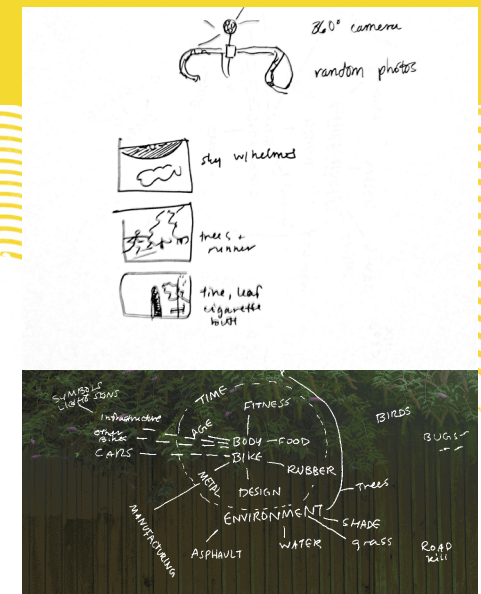 360° camera
random photos
sky w/helmet
trees +
runner
tire, leaf
cigarette
butt
SYMBOLS
LIGHTS SIGNS
Infrastructure
other
Bikes
CARS
TIME
AGE
METAL
FITNESS
BODY — FOOD
BIKE
RUBBER
DESIGN
ENVIRONMENT
MANUFACTURING
ASPHALT
WATER
Trees
SHADE
grass
BIRDS
BUGS
ROAD
kill